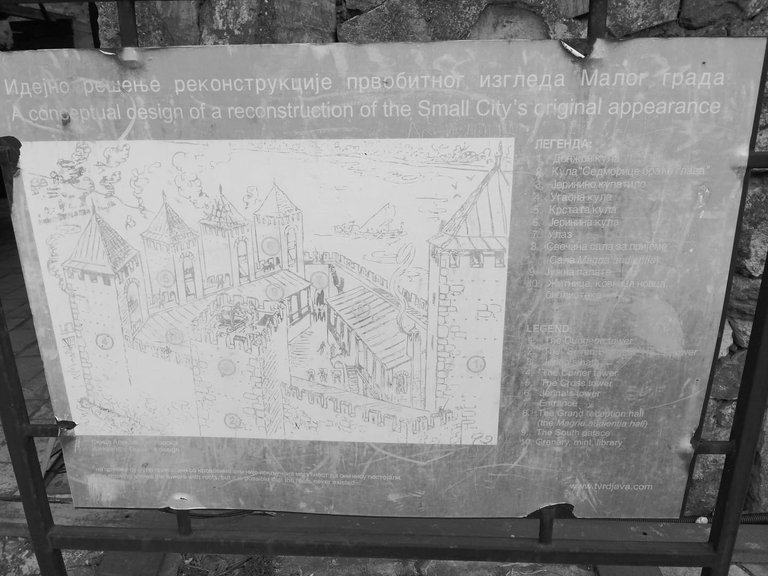 Идејно решење реконструкције првобитног изгледа Малог града
A conceptual design of a reconstruction of the Small City's original appearance
ЛЕГЕНДА:
1. Донжон кула
2. Кула "Седморице браће глава"
3. Јеринино купатило
4. Угаона кула
5. Крстата кула
6. Јеринина кула
7. Улаз
8. Свечана сала за пријеме
(Сала Magna audientia)
9. Јужна палата
10. Житница, ковница новца,
библиотека
LEGEND:
1. The Dungeon tower
4. The Corner tawer
5. The Cross tower
6. Jerina's tower
Entrance
8. The Grand reception hall
(the Magna audientia hall)
9. The South palace
10. Grenary, mint, library
www.tvrdjava.com